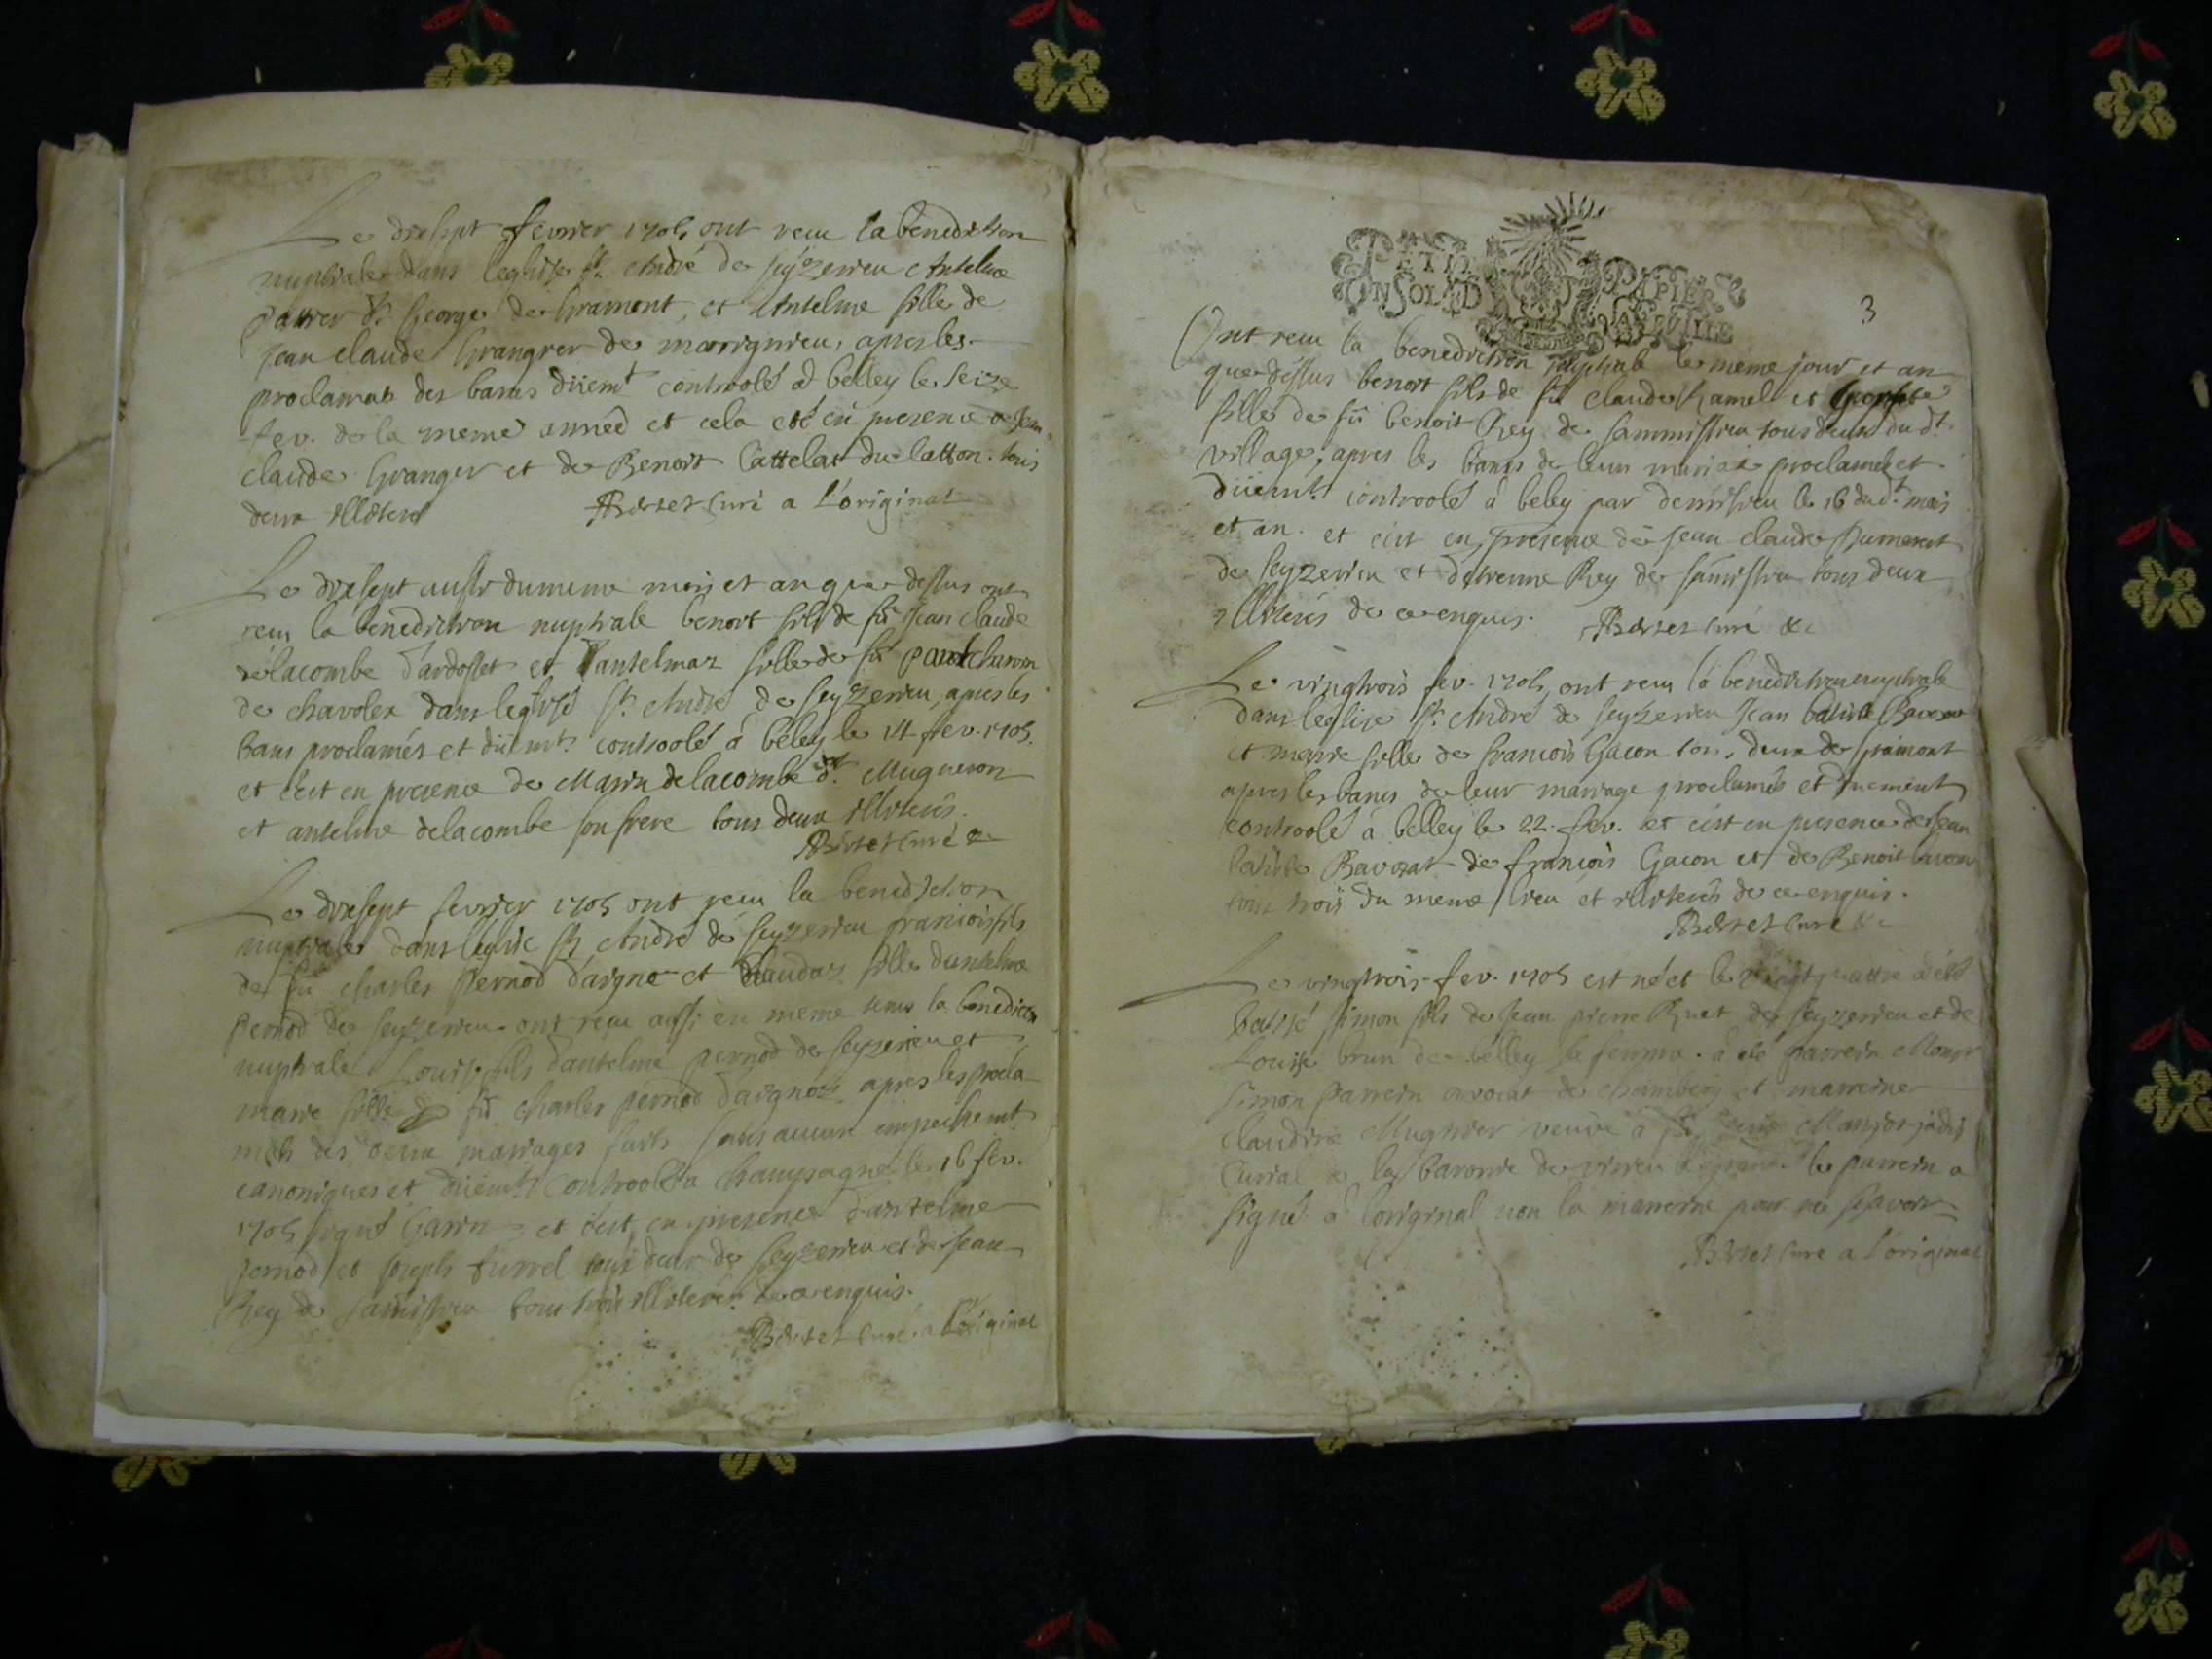 Le dixsept fevrier 1705 ont receu la benediction
nuptiale dans leglise St. André de seyzerieu Antelme
George de Gramont, et Antelme fille de
jean claude Grangier de marignieu, apres les
proclamats des bans düemt controolé a belley le seize
fev. de la meme année et cela eté en presence de Jean
claude Granger et de Benoit Cattelat du latton. tous
deux illiterés Berset Curé a l'original
Le dixsept aussy du meme mois et an que dessus ont
receu la benediction nuptiale benoit fils de fü Jean claude
delacombe d'ardosset et antelmaz fille de fü
de chavoley dans leglise St. André de seyzerieu, apres les
bans proclamés et düemt. controolé à béley le fev. 1705.
et c'est en presence de Marin delacombe dt. Mugneron
et antelme delacombe son frere tous deux illiterés.
Berset Curé &
Le dixsept fevrier 1705 ont receu la benediction
nuptiale dans leglise St André de seyzerieu francois fils
de fü charles Pernod d'aignoz et Claudaz fille dantelme
Pernod de seyzerieu. ont receu aussi en meme tems la benediction
nuptiale Louis fils d'antelme pernod de seyzerieu et
marie fille de fü charles pernod d'aignoz apres les procla
mats des deux mariages faits sans aucun empechemt
canoniques et düemt. Controolé a Champagne le 16 fev.
1705 signé Garin et c'est en presence d'antelme
pernod et joseph furrel tous deux de seyzerieu et de Jean
Rey de samissieu tous trois illiterés de ce enquis.
Berset Curé a l'original
PETIT PAPIER
UN SOL LA FEUILLE
3
Ont receu la benediction nuptiale le meme jour et an
que dessus benoit fils de fü claude hamel et
fille de fü benoit Rey de sammissieu tous deux du dt.
village, apres les bans de leur mariage proclamés et
düemt. controolé à beley par demissieu le 16 dudt. mois
et an. et c'est en presence de jean claude Dumerest
de seyzerieu et detienne Rey de samissieu tous deux
illiterés de ce enquis. Berset Curé &c
Le vingtrois fev. 1705, ont receu la benediction nuptiale
dans leglise St. André de seyzerieu Jean batiste
et marie fille de francois Gacon tous deux de Gramont
apres les bans de leur mariage proclamés et düement
controolé à belley le 22. fev. et c'est en presence de Jean
batiste Bavozat de francois Gacon et de Benoit
tous trois du meme lieu et illiterés de ce enquis.
Berset Curé &c
Le vingtrois fev. 1705 est né et le vingt quattre a été
batisé simon fils de Jean pierre Ruet de seyzerieu et de
Louise brun de belley sa femme. a été parrein Monsr
simon parrein avocat de chambery et marreine
Claudine Mugnier veuve à fü Manjot jadis
Curial de la baronie de virieu le grand. le parrein a
signé à l'original non la marreine pour ne sçavoir
Berset Curé a l'original